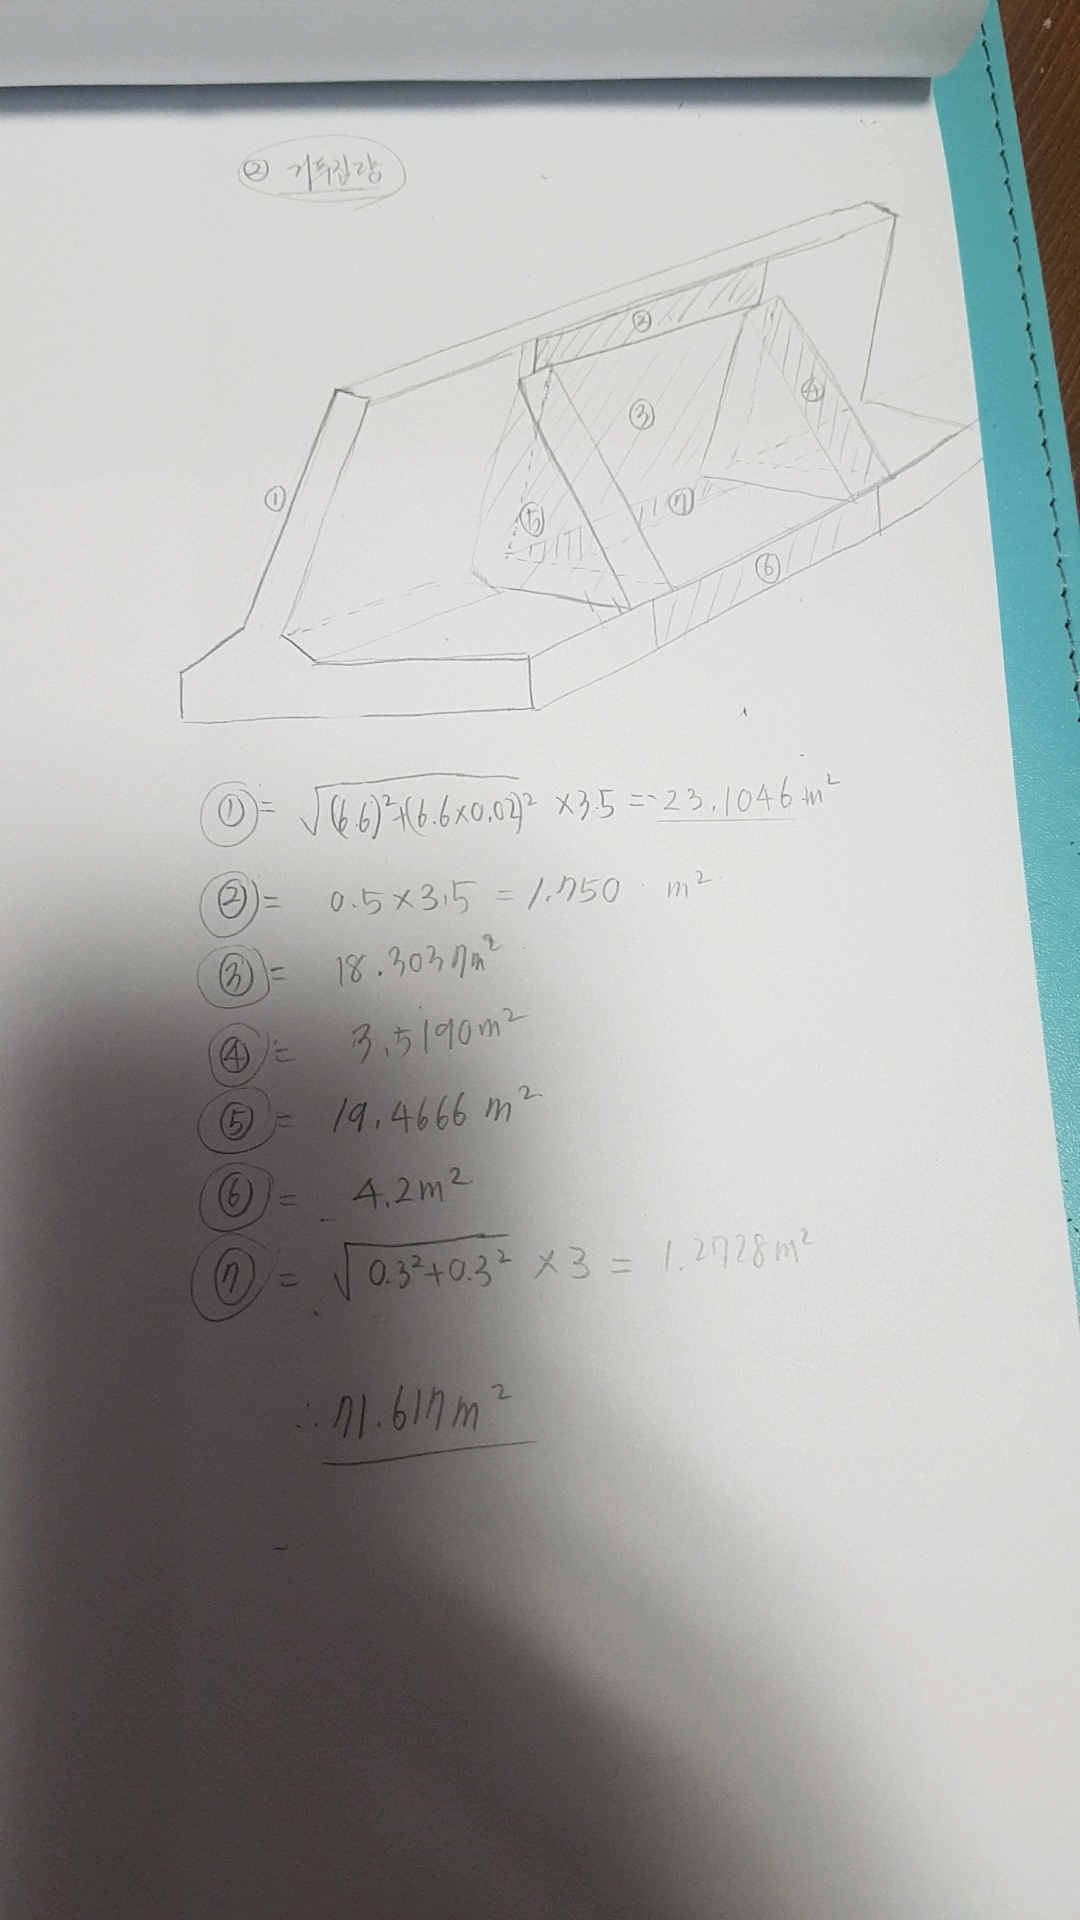 ② 거푸집량
②
④
③
①
⑦
⑤
⑥
① = √(6.6)²+(6.6×0.02)² ×3.5 = 23.1046 m²
② = 0.5×3.5 = 1.750 m²
③ = 18.3037m²
④ = 3.5190m²
⑤ = 19.4666 m²
⑥ = 4.2m²
⑦ = √0.3²+0.3² × 3 = 1.2728m²
∴ 71.617m²